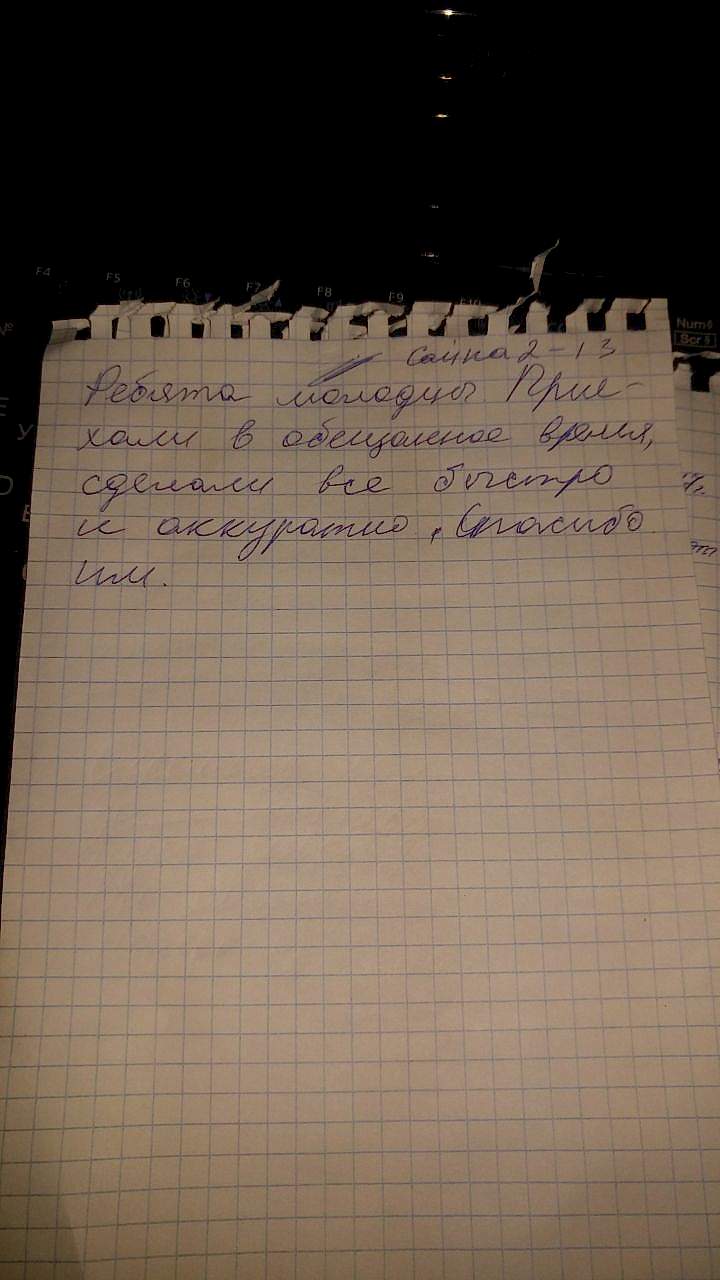 F4 F5 F6 F7 F8 F9 F10
Num
Scr
Сайна 2-13
Ребята молодцы Прие-
хали в обещанное время,
сделали все быстро
и аккуратно, Спасибо
им.